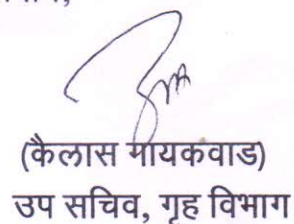 (कैलास गायकवाड)
उप सचिव, गृह विभाग